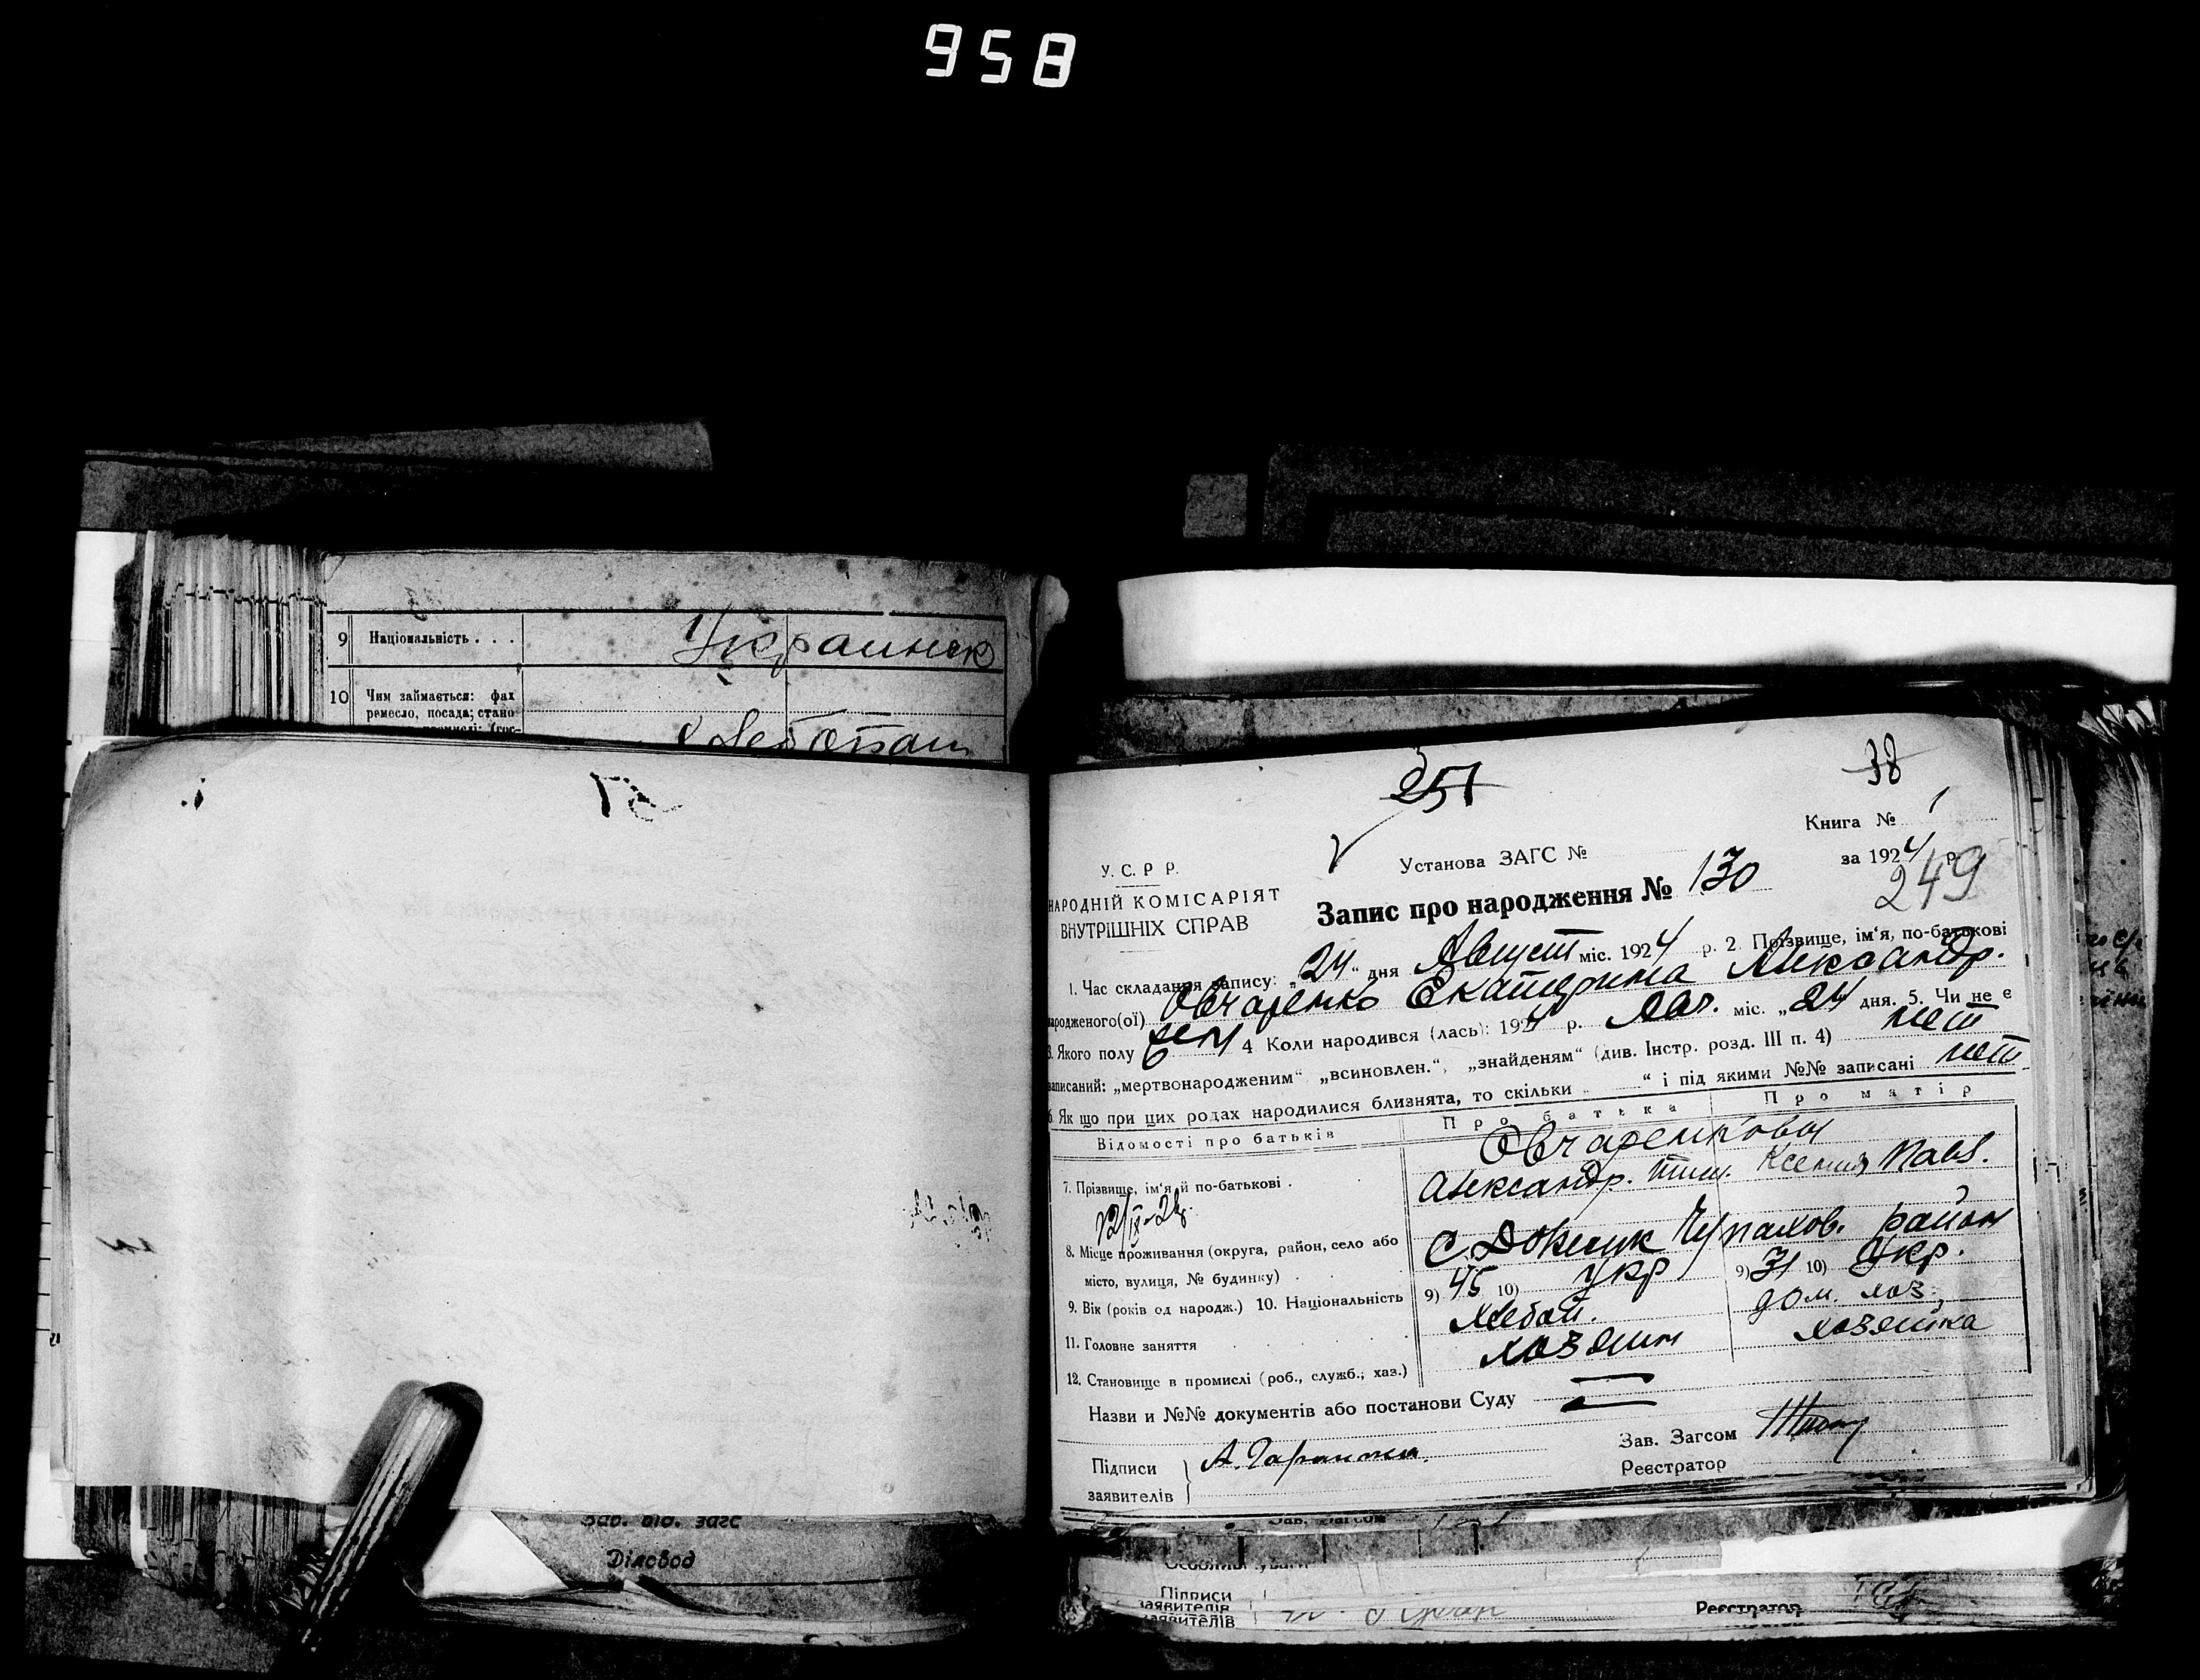 958
9 Національність . . . Украинск
10 Чим займається: фах
ремесло, посада; стано
Хлебопаш
Зав. від. загс
Діловод
251
38
Книга № 1
У. С. Р Р.
Установа ЗАГС №
за 1924 р.
НАРОДНІЙ КОМІСАРІЯТ
ВНУТРІШНІХ СПРАВ
Запис про народження № 130
249
1. Час складання запису: „24“ дня Август міс. 1924 р. 2. Прізвище, ім'я, по-батькові
народженого(ої) Овчаренко Екатерина Александр.
3. Якого полу жен 4 Коли народився (лась): 1924 р. Авг. міс. „24 дня. 5. Чи не є
записаний: „мертвонародженим“ „всиновлен.“, „знайденям“ (див. Інстр. розд. III п. 4) нет
6. Як що при цих родах народилися близнята, то скільки “ і під якими №№ записані нет
Відомості про батьків Про батька Про матір
7. Прізвище, ім'я й по-батькові . Овчаренковы
Александр. Тим. Ксения Павл.
12/IX-24.
8. Місце проживання (округа, район, село або
місто, вулиця, № будинку) . С. район
9. Вік (років од народж.) 10. Національність 9) 45 10) Укр 9) 31 10) Укр.
11. Головне заняття Хлебоп. дом. хоз.
12. Становище в промислі (роб., служб.; хаз.) хозяин хозяйка
Назви и №№ документів або постанови Суду
Підписи
заявителів
А.
Зав. Загсом
Реєстратор
Зав. Загсом
Підписи
заявителів
Реєстратор